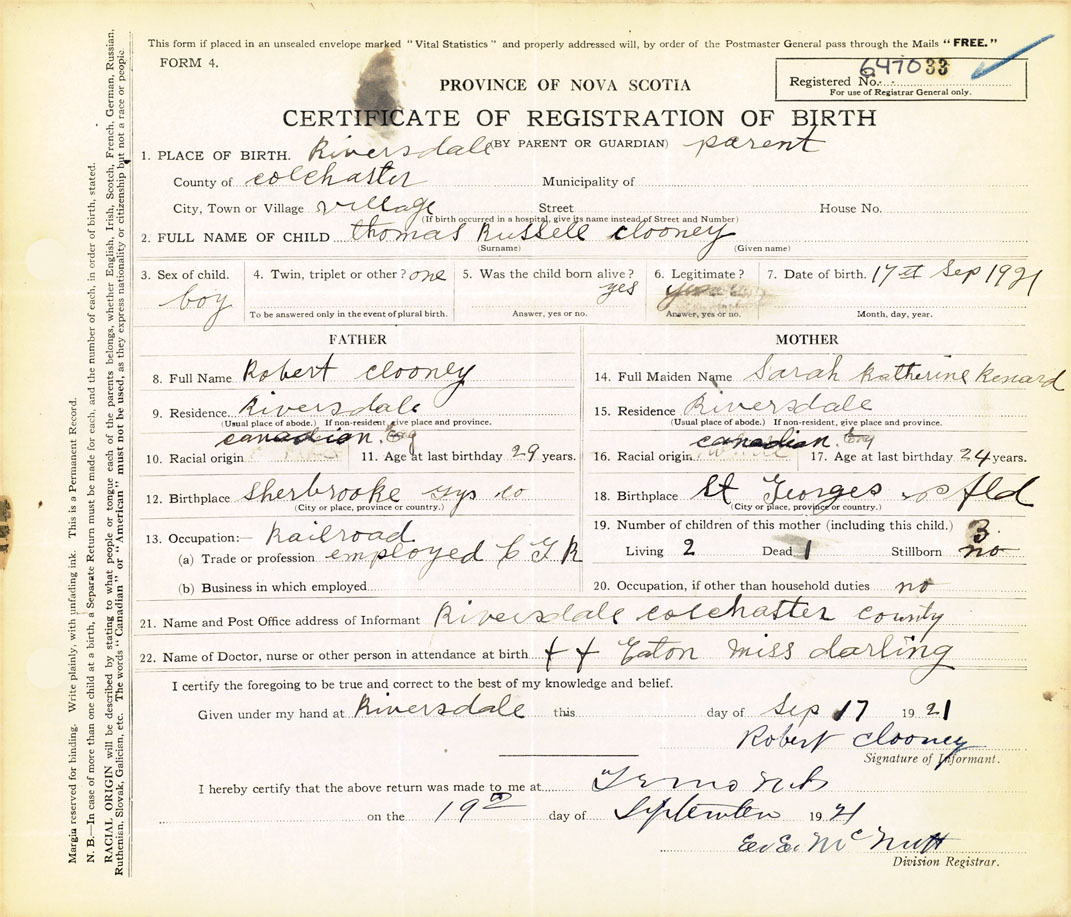 This form if placed in an unsealed envelope marked "Vital Statistics" and properly addressed will, by order of the Postmaster General pass through the Mails "FREE."
FORM 4.
PROVINCE OF NOVA SCOTIA
Registered No. 647033
For use of Registrar General only.
CERTIFICATE OF REGISTRATION OF BIRTH
(BY PARENT OR GUARDIAN) parent
1. PLACE OF BIRTH. Riversdale
County of colchaster Municipality of
City, Town or Village village Street House No.
(If birth occurred in a hospital, give its name instead of Street and Number)
2. FULL NAME OF CHILD thomas Russell clooney
(Surname) (Given name)
3. Sex of child. boy
4. Twin, triplet or other? one
To be answered only in the event of plural birth.
5. Was the child born alive? yes
Answer, yes or no.
6. Legitimate?
Answer, yes or no.
7. Date of birth. 17 Sep 1921
Month, day, year.
FATHER
8. Full Name Robert clooney
9. Residence Riversdale
(Usual place of abode.) If non-resident, give place and province.
canadian. Eng
10. Racial origin 11. Age at last birthday 29 years.
12. Birthplace Sherbrooke Gys Co
(City or place, province or country.)
13. Occupation:— Railroad
(a) Trade or profession employed
(b) Business in which employed
MOTHER
14. Full Maiden Name Sarah Katherine Renard
15. Residence Riversdale
(Usual place of abode.) If non-resident, give place and province.
canadian. Eng
16. Racial origin 17. Age at last birthday 24 years.
18. Birthplace St Georges fld
(City or place, province or country.)
19. Number of children of this mother (including this child.) 3
Living 2 Dead 1 Stillborn no
20. Occupation, if other than household duties no
21. Name and Post Office address of Informant Riversdale colchaster county
22. Name of Doctor, nurse or other person in attendance at birth Eaton miss darling
I certify the foregoing to be true and correct to the best of my knowledge and belief.
Given under my hand at Riversdale this day of Sep 17 1921
Robert clooney
Signature of Informant.
I hereby certify that the above return was made to me at
on the 19 day of September 1921
E. E. McNutt
Division Registrar.
Margin reserved for binding. Write plainly, with unfading ink. This is a Permanent Record.
N. B.—In case of more than one child at a birth, a Separate Return must be made for each, and the number of each, in order of birth, stated.
RACIAL ORIGIN will be described by stating to what people or tongue each of the parents belongs, whether English, Irish, Scotch, French, German, Russian,
Ruthenian, Slovak, Galician, etc. The words "Canadian" or "American" must not be used, as they express nationality or citizenship but not a race or people.